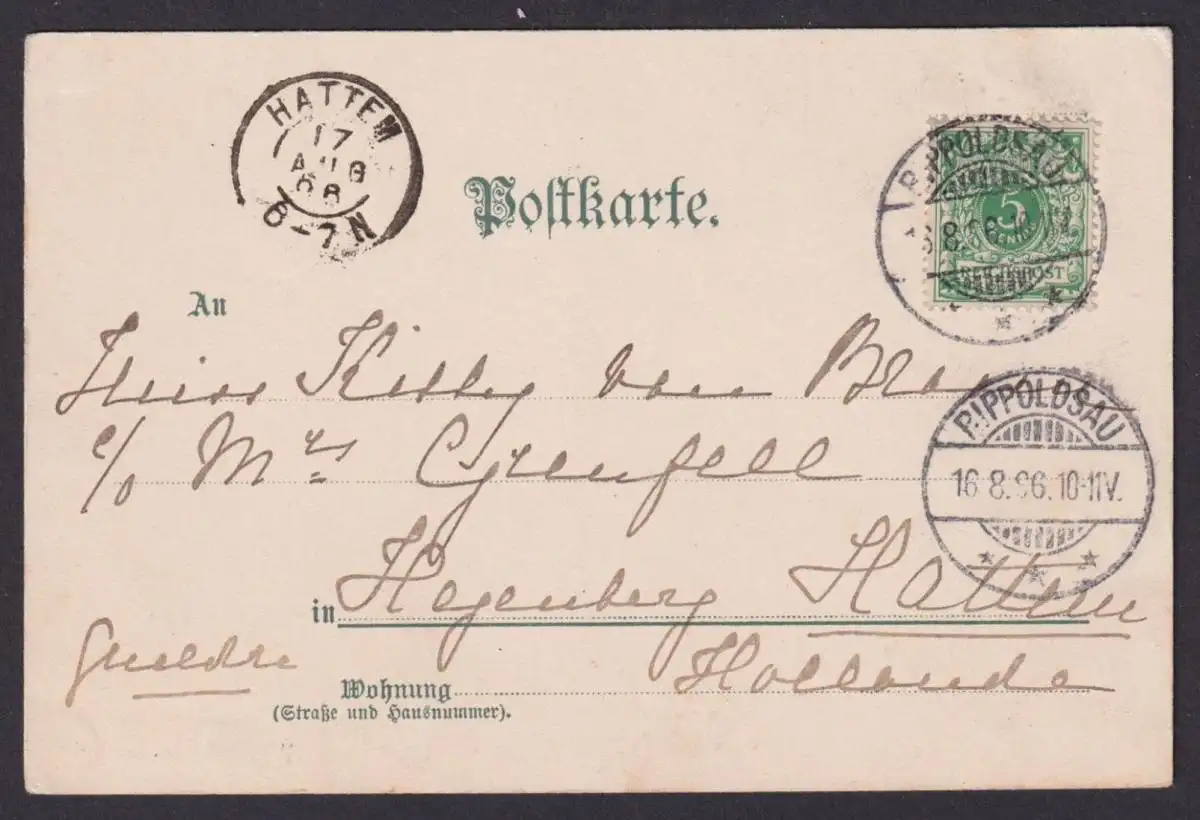 HATTEM
17
AUG
6-7N
Postkarte.
RIPPOLDSAU
8.
5
PFENNIG
REICHSPOST
An
Miss Kitty van
c/o Mrs Grenfell
RIPPOLDSAU
16.8.96.10-11V.
in Hegenberg Hattem
Gueldre
Hollande
Wohnung
(Straße und Hausnummer).